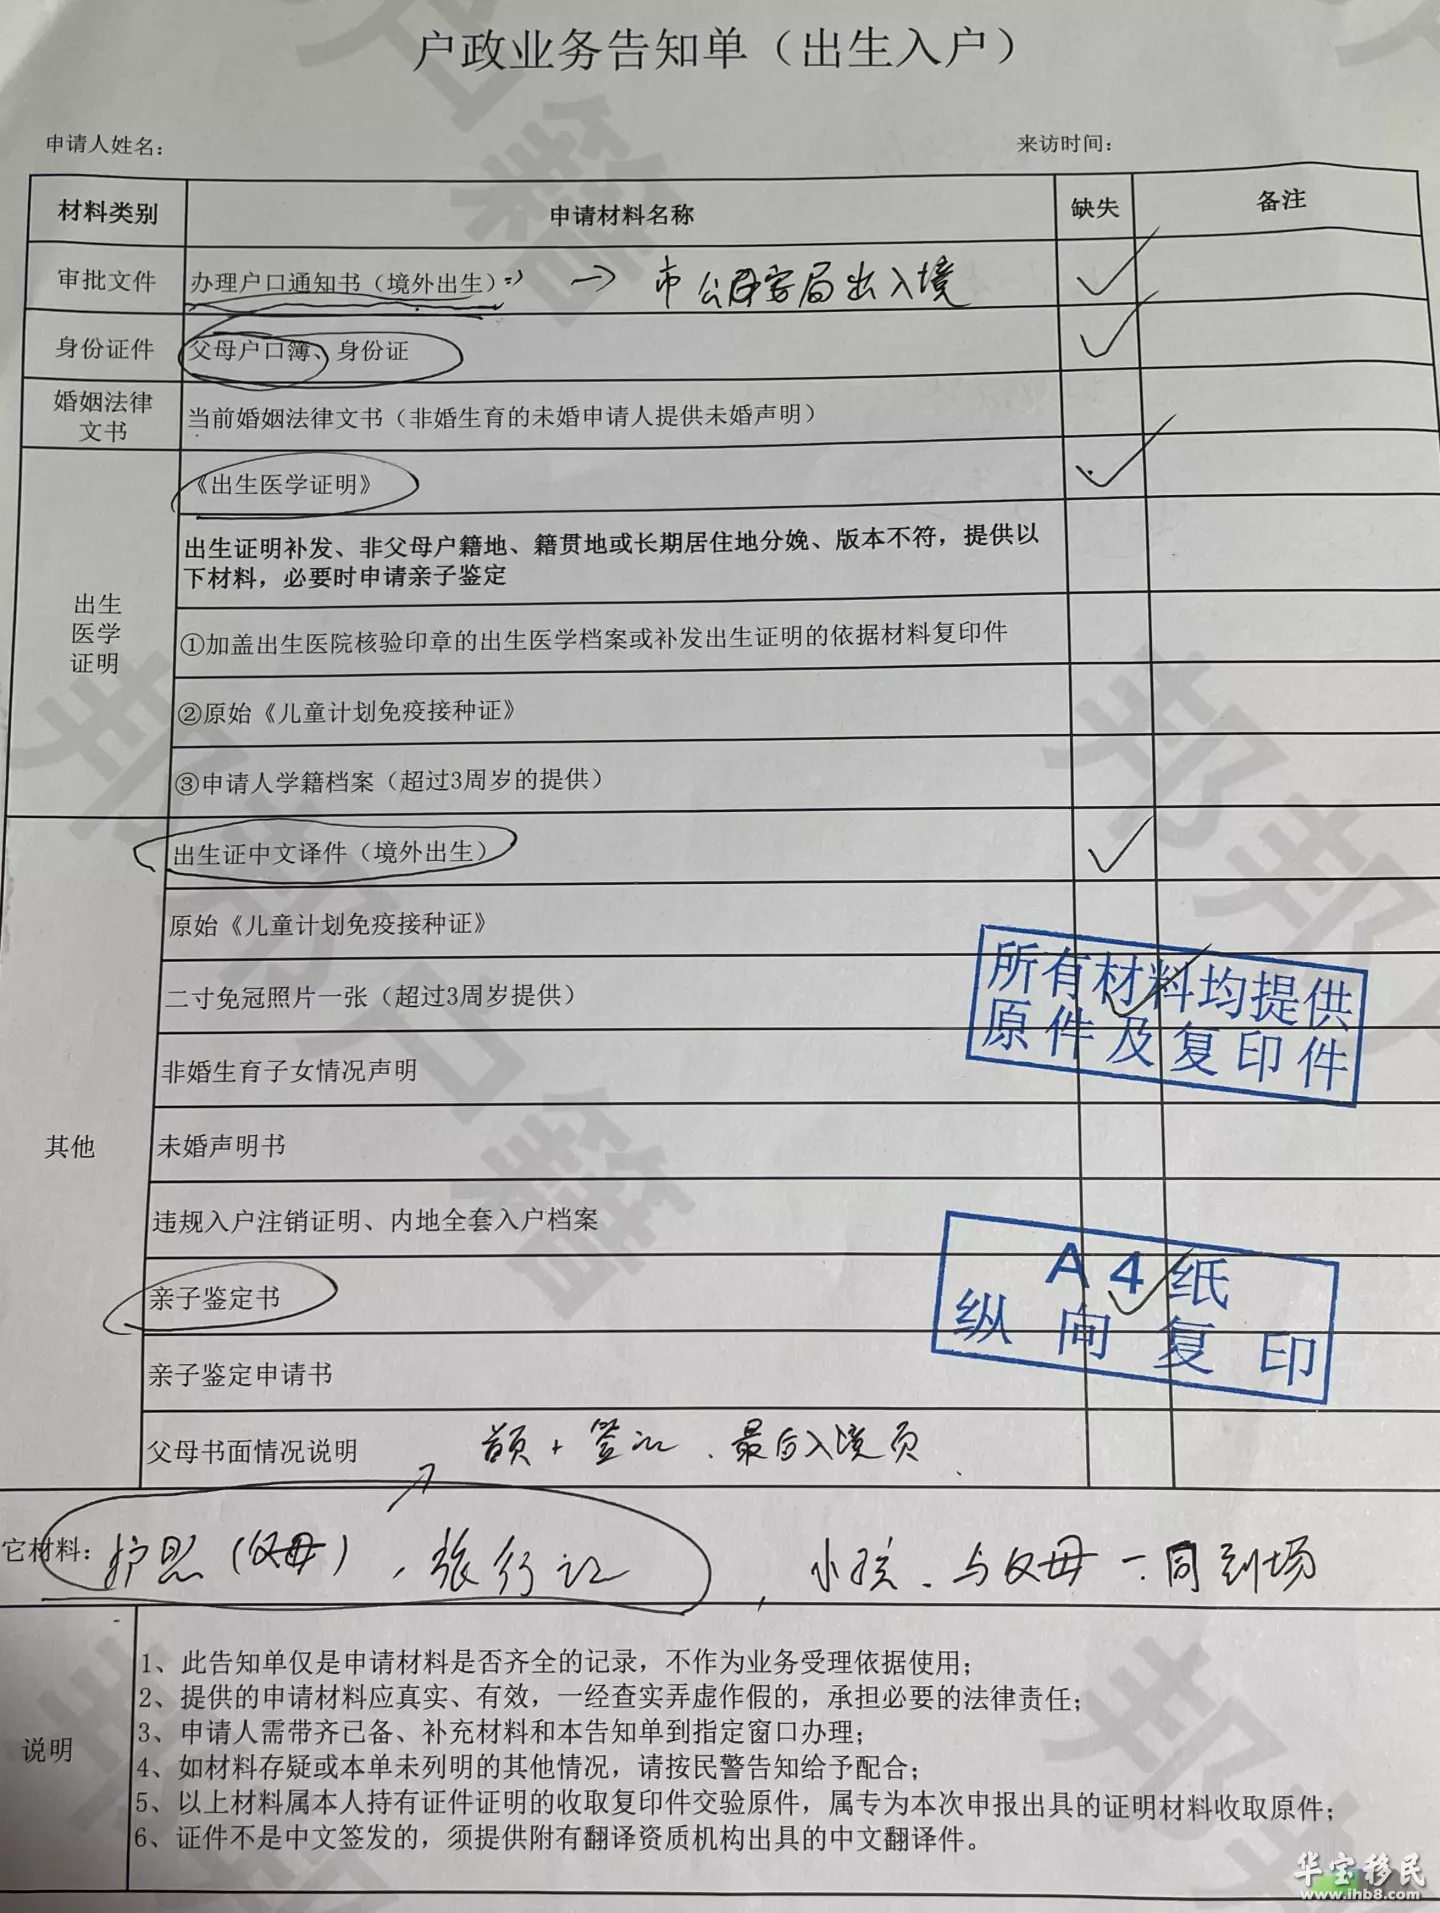 户政业务告知单（出生入户）
申请人姓名：
来访时间：
材料类别 申请材料名称 缺失 备注
审批文件 办理户口通知书（境外出生） → 市公安局出入境
身份证件 父母户口簿、身份证
婚姻法律文书 当前婚姻法律文书（非婚生育的未婚申请人提供未婚声明）
出生
医学
证明
《出生医学证明》
出生证明补发、非父母户籍地、籍贯地或长期居住地分娩、版本不符，提供以
下材料，必要时申请亲子鉴定
①加盖出生医院核验印章的出生医学档案或补发出生证明的依据材料复印件
②原始《儿童计划免疫接种证》
③申请人学籍档案（超过3周岁的提供）
其他
出生证中文译件（境外出生）
原始《儿童计划免疫接种证》
所有材料均提供
原件及复印件
二寸免冠照片一张（超过3周岁提供）
非婚生育子女情况声明
未婚声明书
违规入户注销证明、内地全套入户档案
A4纸
纵向复印
亲子鉴定书
亲子鉴定申请书
父母书面情况说明 首页+签证、最后入境页
它材料：护照（父母），旅行证，小孩、与父母一同到场
说明
1、此告知单仅是申请材料是否齐全的记录，不作为业务受理依据使用；
2、提供的申请材料应真实、有效，一经查实弄虚作假的，承担必要的法律责任；
3、申请人需带齐已备、补充材料和本告知单到指定窗口办理；
4、如材料存疑或本单未列明的其他情况，请按民警告知给予配合；
5、以上材料属本人持有证件证明的收取复印件交验原件，属专为本次申报出具的证明材料收取原件；
6、证件不是中文签发的，须提供附有翻译资质机构出具的中文翻译件。
邦邦户籍
华宝移民
www.ihb8.com